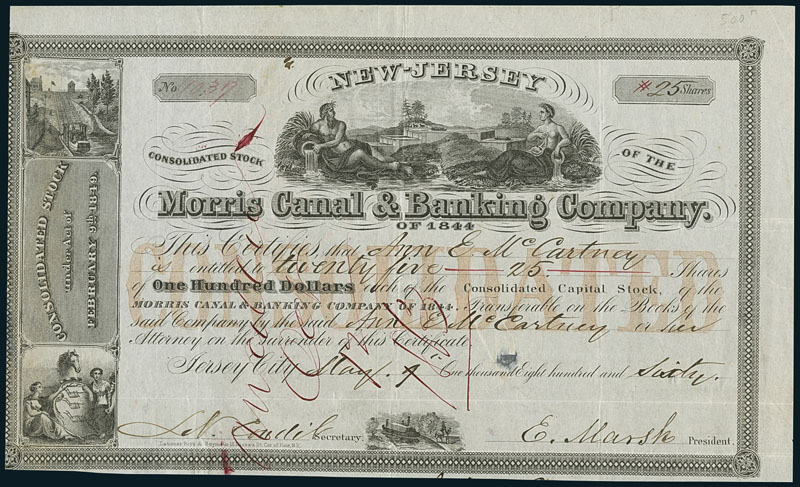 500
NEW-JERSEY
No 1039
#25 Shares
CONSOLIDATED STOCK
OF THE
Morris Canal & Banking Company.
OF 1844
CONSOLIDATED STOCK
under Act of
FEBRUARY 9th 1849.
CONSOLIDATED
This Certifies, that Ann E McCartney
is entitled to twenty five 25 Shares
of One Hundred Dollars each of the Consolidated Capital Stock, of the
MORRIS CANAL & BANKING COMPANY OF 1844. Transferable on the Books of the
said Company by the said Ann E McCartney or her
Attorney on the Surrender of this Certificate.
Jersey City May. 4 One thousand Eight hundred and Sixty.
Cancelled
Secretary.
E. Marsh President.